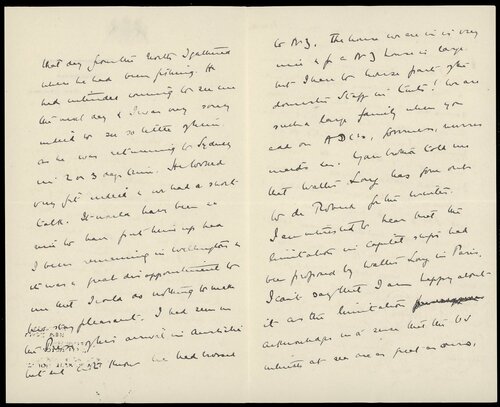 that day from the North I gathered
where he had been fishing. He
had intended coming to see me
the next day & I was very sorry
indeed to see so little of him
as he was returning to Sydney
in 2 or 3 days time. He looked
very fit indeed & we had a short
talk. It would have been
nice to have put him up had
I been remaining in Wellington &
it was a great disappointment to
me that I could do nothing to make
his stay pleasant. I had seen in
the Press of his arrival in Australia
but did not know he had crossed
to N.Z. The house we are in is very
nice & for a N.Z. house is large
but I have to house part of the
domestic staff in tents! We are
such a large family when you
add on ADCs, governess, nurses
maids etc. Your brother told me
that Walter Long has gone out
to the for the winter.
I am interested to hear that the
limitation in Capital ships had
been proposed by Walter Long in Paris.
I can't say that I am happy about
it as the limitation
acknowledges in a sense that the US
interests at sea are as great as ours,